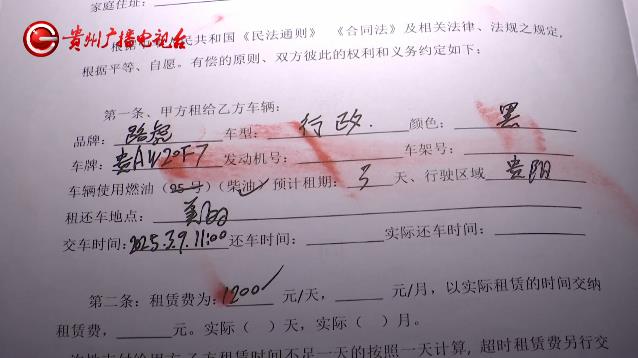 家庭住址:
贵州广播电视台
根据 民共和国《民法通则》《合同法》及相关法律、法规之规定,
根据平等、自愿。有偿的原则、双方彼此的权利和义务约定如下:
第一条、甲方租给乙方车辆:
品牌: 路虎 车型: 行政. 颜色: 黑
车牌: 贵AW20F7 发动机号: 车架号:
车辆使用燃油(95号)(柴油)预计租期: 3 天、行驶区域 贵阳
租还车地点:
交车时间: 2025.3.9.11:00 还车时间: 实际还车时间:
第二条: 租赁费为: 1200 元/天, 元/月, 以实际租赁的时间交纳
租赁费, 元。实际( )天, 实际( )月。
方租赁时间不足一天的按照一天计算, 超时租赁费另行交